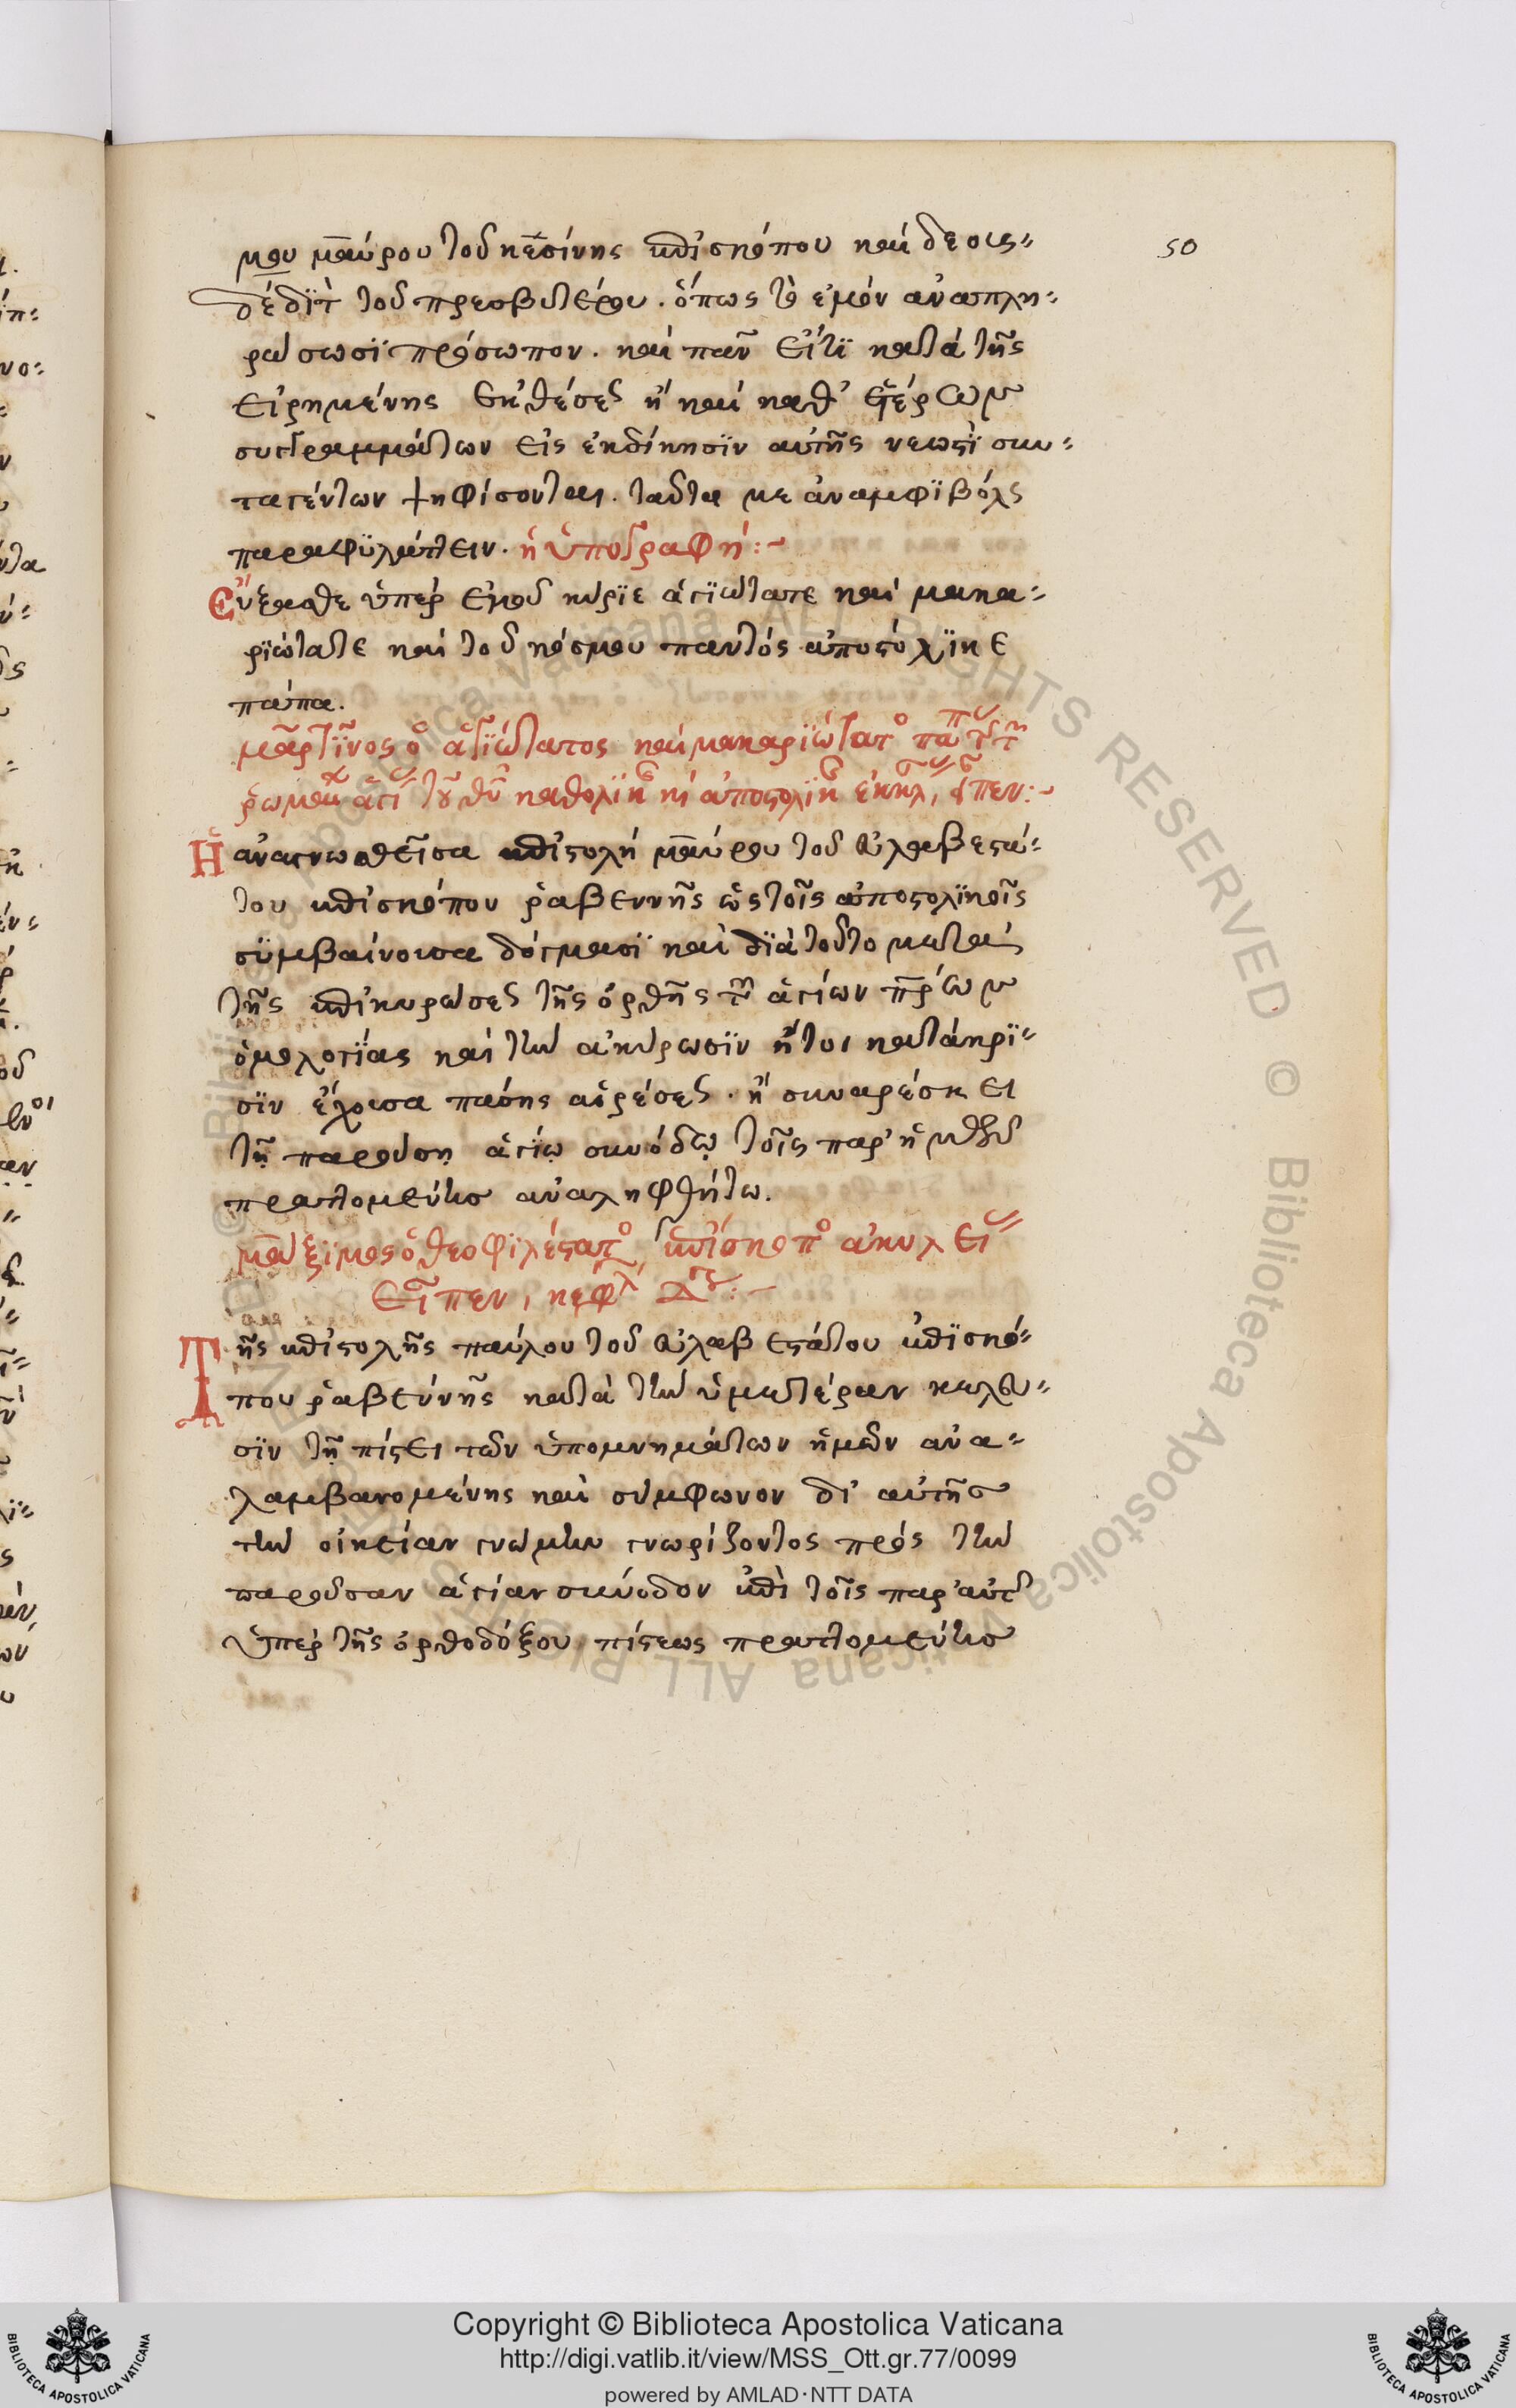 μου μαύρου τοῦ κεσίνης ἐπισκόπου καὶ δεους-
δέδϊτ τοῦ πρεσβυτέρου. ὅπως τὸ ἐμὸν ἀναπλη-
ρώσωσϊ πρόσωπον. καὶ πᾶν εἴτϊ κατὰ τῆς
εἰρημένης ἐκθέσεως ἢ καὶ καθ' ἑτέρων
συγγραμμάτων εἰς ἐκδίκησϊν αὐτῆς νεωστὶ συν-
ταγέντων ψηφίσονται. ταῦτα με ἀναμφϊβόλως
παραφϋλάττειν. ἡ ὑπογραφή:~
Εὔξασθε ὑπὲρ ἐμοῦ κύρϊε ἁγϊώτατε καὶ μακα-
ρϊώτατε καὶ τοῦ κόσμου παντὸς ἀποστόλϊκε
πάπα.
μαρτῖνος ὁ ἁγϊώτατος καὶ μακαρϊώτατο πάπ τῆ
ῥωμαι ἁγι τοῦ θυ καθολϊκ κ ἀποστολϊκ ἐκκλ, εἶπεν:~
Ἡ ἀναγνωσθεῖσα ἐπιστολὴ μαύρου τοῦ εὐλαβεστά-
του ἐπισκόπου ῥαβεννῆς ὡς τοῖς ἀποστολϊκοῖς
σϋμβαίνουσα δόγμασϊ καὶ δϊὰ τοῦτο μετὰ
τῆς ἐπικυρώσεως τῆς ὀρθῆς τῶν ἁγίων πρων
ὁμολογίας καὶ τὴν ἀκύρωσϊν ἤτοι κατάκρϊ-
σϊν ἔχουσα πάσης αἱρέσεως. ἢ συναρέσκει
τῇ παρούσῃ ἁγίῳ συνόδῳ τοῖς παρ' ἡμῶν
πραττομένοις ἀναληφθήτω.
μαξϊμος ὁ θεοφϊλέστατο, ἐπίσκοπο ἀκυλεί
εἶπεν, κεφλ :~
Τῆς ἐπιστολῆς παύλου τοῦ εὐλαβεστάτου ἐπϊσκό-
που ῥαβεννῆς κατὰ τὴν ὑμετέραν κέλευ-
σϊν τῇ πίστει τῶν ὑπομνημάτων ἡμῶν ἀνα-
λαμβανομένης καὶ σύμφωνον δι' αὐτῆς
τὴν οἰκείαν γνώμην γνωρίζοντος πρὸς τὴν
παροῦσαν ἁγίαν σύνοδον ἐπὶ τοῖς παρ' αὐτῆς
ὑπὲρ τῆς ὀρθοδόξου πίστεως πραττομένοις
50
© Biblioteca Apostolica Vaticana ALL RIGHTS RESERVED
Copyright © Biblioteca Apostolica Vaticana
http://digi.vatlib.it/view/MSS_Ott.gr.77/0099
powered by AMLAD·NTT DATA
BIBLIOTECA APOSTOLICA VATICANA
BIBLIOTECA APOSTOLICA VATICANA